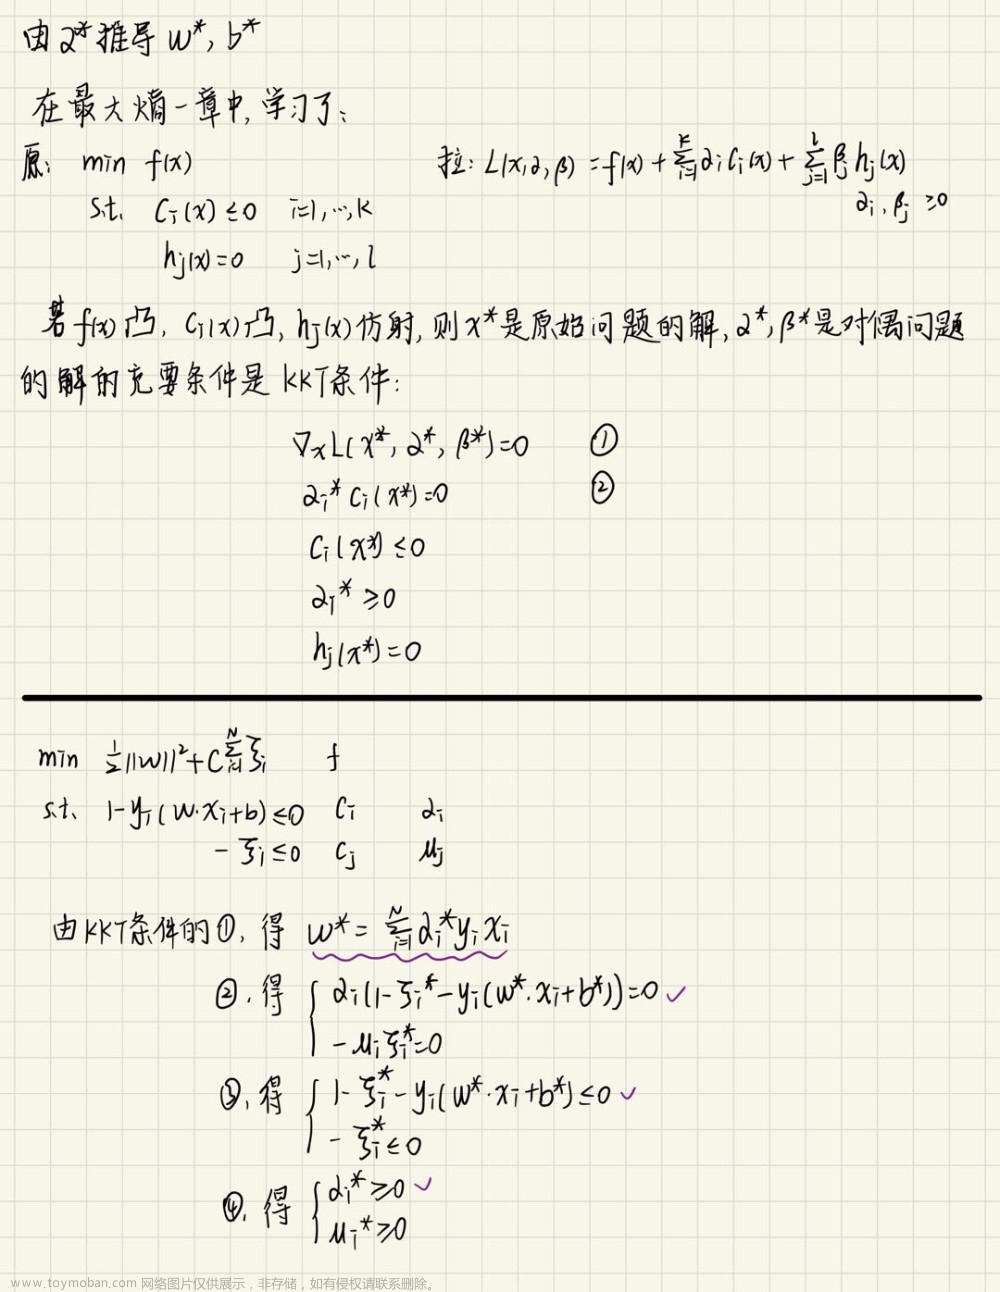 由α*推导 w*, b*
在最大熵一章中, 学习了:
原: min f(x) 拉: L(x,α,β) = f(x) + Σ_{i=1}^{k} α_i c_i(x) + Σ_{j=1}^{l} β_j h_j(x)
s.t. c_i(x) ≤ 0 i=1,…,k α_i, β_j ≥ 0
h_j(x) = 0 j=1,…,l
若 f(x) 凸, c_i(x) 凸, h_j(x) 仿射, 则 x* 是原始问题的解, α*, β* 是对偶问题
的解的充要条件是 KKT条件:
∇_x L(x*, α*, β*) = 0 ①
α_i* c_i(x*) = 0 ②
c_i(x*) ≤ 0
α_i* ≥ 0
h_j(x*) = 0
min ½||w||² + C Σ_{i=1}^{N} ξ_i f
s.t. 1-y_i(w·x_i+b) ≤ 0 c_i α_i
-ξ_i ≤ 0 c_j μ_j
由KKT条件的①, 得 w* = Σ_{i=1}^{N} α_i* y_i x_i
②, 得 { α_i(1-ξ_i*-y_i(w*·x_i+b*)) = 0 ✓
-μ_i ξ_i* = 0
③, 得 { 1-ξ_i*-y_i(w*·x_i+b*) ≤ 0 ✓
-ξ_i* ≤ 0
④, 得 { α_i* ≥ 0 ✓
μ_i* ≥ 0
www.toymoban.com 网络图片仅供展示，非存储，如有侵权请联系删除。